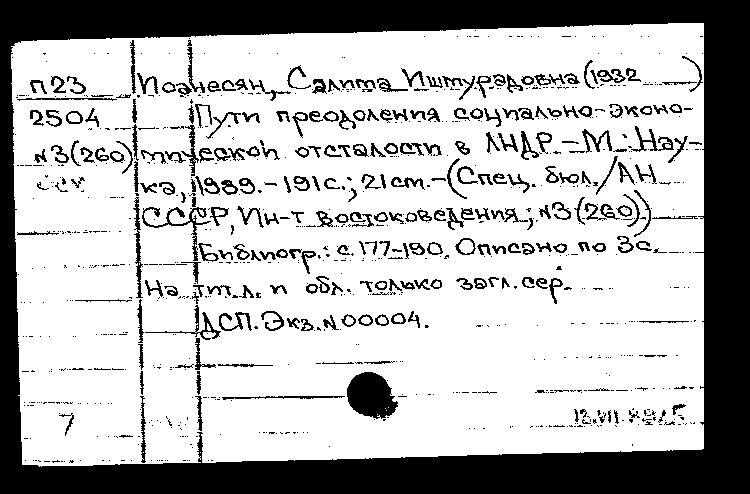 П23 Иоанесян, Сэлита Иштурадовна (1932 )
2504 Пути преодоления социально-эконо-
N3(260) мической отсталости в ЛНДР. - М.: Нау-
ка, 1989. - 191с.; 21см. - (Спец. бюл. / АН
СССР, Ин-т востоковедения; N3(260))
Библиогр.: с. 177-190. Описано по 3с.
На тит. л. и обл. только загл. сер.
ДСП. Экз. N 00004.
7